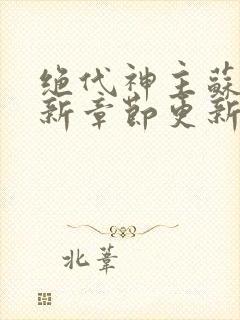 绝代神主蘇
新章節更新
北葦